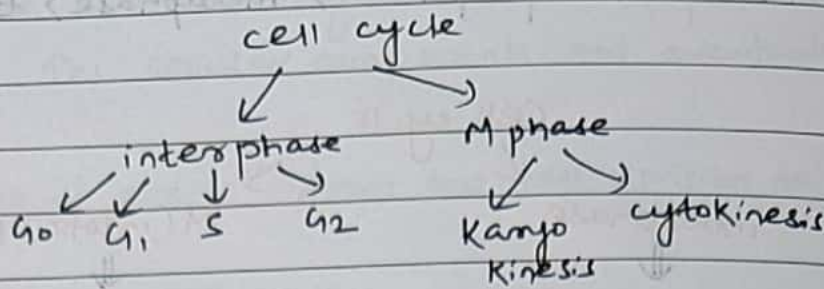 cell cycle
interphase M phase
G0 G1 S G2 Karyo cytokinesis
kinesis